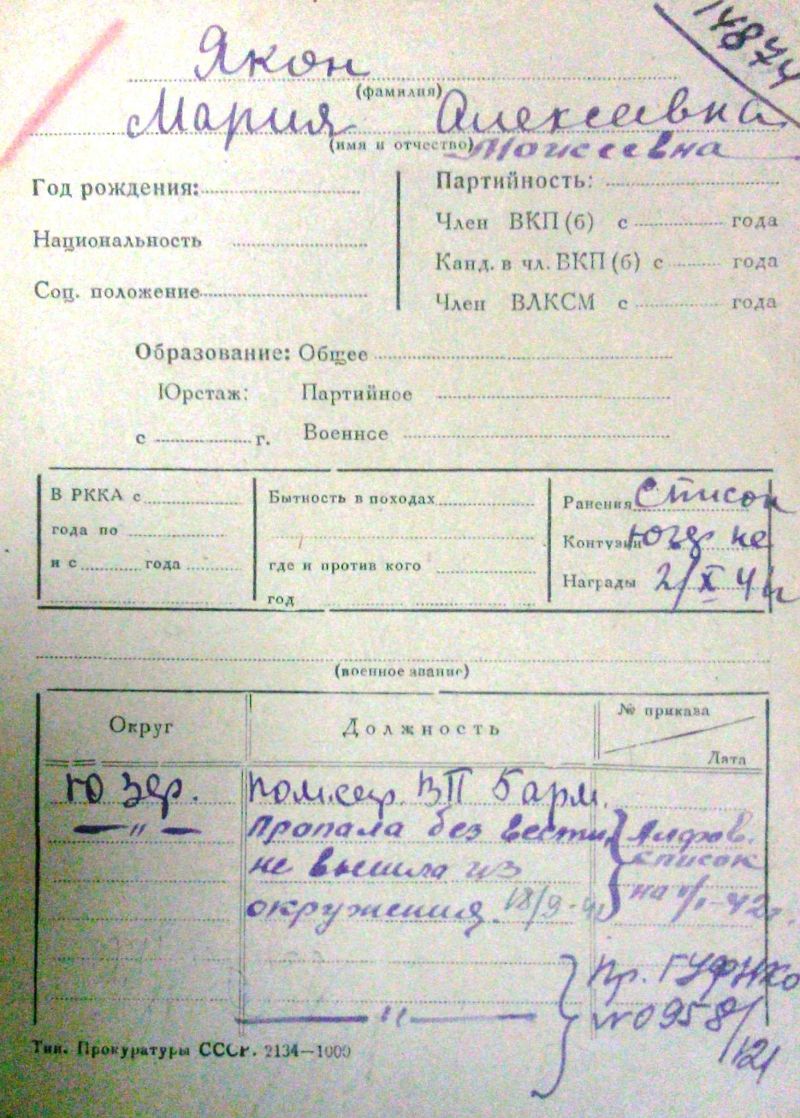 14874
Якон
(фамилия)
Мария Алексеевна
(имя и отчество) Моисеевна
Год рождения:
Национальность
Соц. положение
Партийность:
Член ВКП(б) с года
Канд. в чл. ВКП(б) с года
Член ВЛКСМ с года
Образование: Общее
Юрстаж: Партийное
с г. Военное
В РККА с
года по
и с года
Бытность в походах
где и против кого
год
Ранения Список
Контузии не
Награды 2/X 41
(военное звание)
Округ Должность № приказа
Дата
Ю зфр. Пом. секр. ВП 5 арм.
— " — Пропала без вести, Алфав.
не вышла из список
окружения. 18/9-41 на 1/I-42г.
Пр. ГУФ НКО
— " — № 0958/
121
Тип. Прокуратуры СССР. 2134—1000